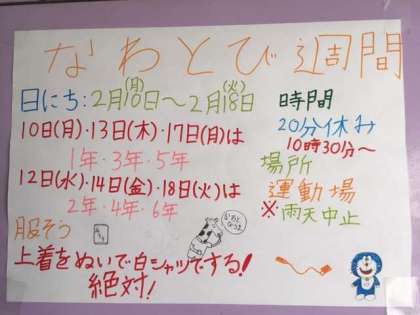 なわとび週間
日にち:2月10日(月)〜2月18日(火)
10日(月)・13日(木)・17日(月)は
1年・3年・5年
12日(水)・14日(金)・18日(火)は
2年・4年・6年
服そう
上着をぬいで白シャツでする!
絶対!
時間
20分休み
10時30分〜
場所
運動場
※雨天中止